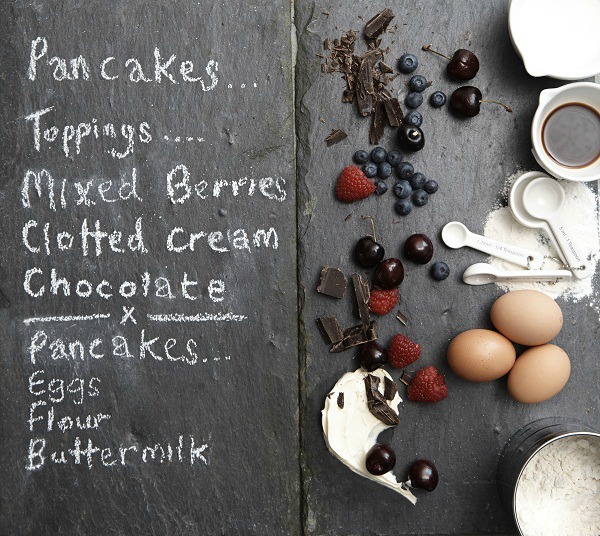 Pancakes...
Toppings....
Mixed Berries
Clotted Cream
Chocolate
x
Pancakes...
Eggs
Flour
Buttermilk